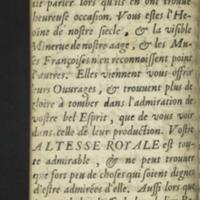 sit parler lors qu'ils en ont trouvé
heureuse occasion. Vous estes l'He-
oine de nostre siecle, & la visible
Minerve de nostre aage, & les Mu-
ses Françoises n'en reconnoissent point
d'autres. Elles viennent vous offrir
leurs Ouvrages, & trouvent plus de
gloire à tomber dans l'admiration de
vostre bel Esprit, que de vous voir
dans celle de leur production. Vostre
ALTESSE ROYALE est trou-
te admirable, & ne peut trouver
que fort peu de choses qui soient dignes
d'estre admirées d'elle. Aussi lors que